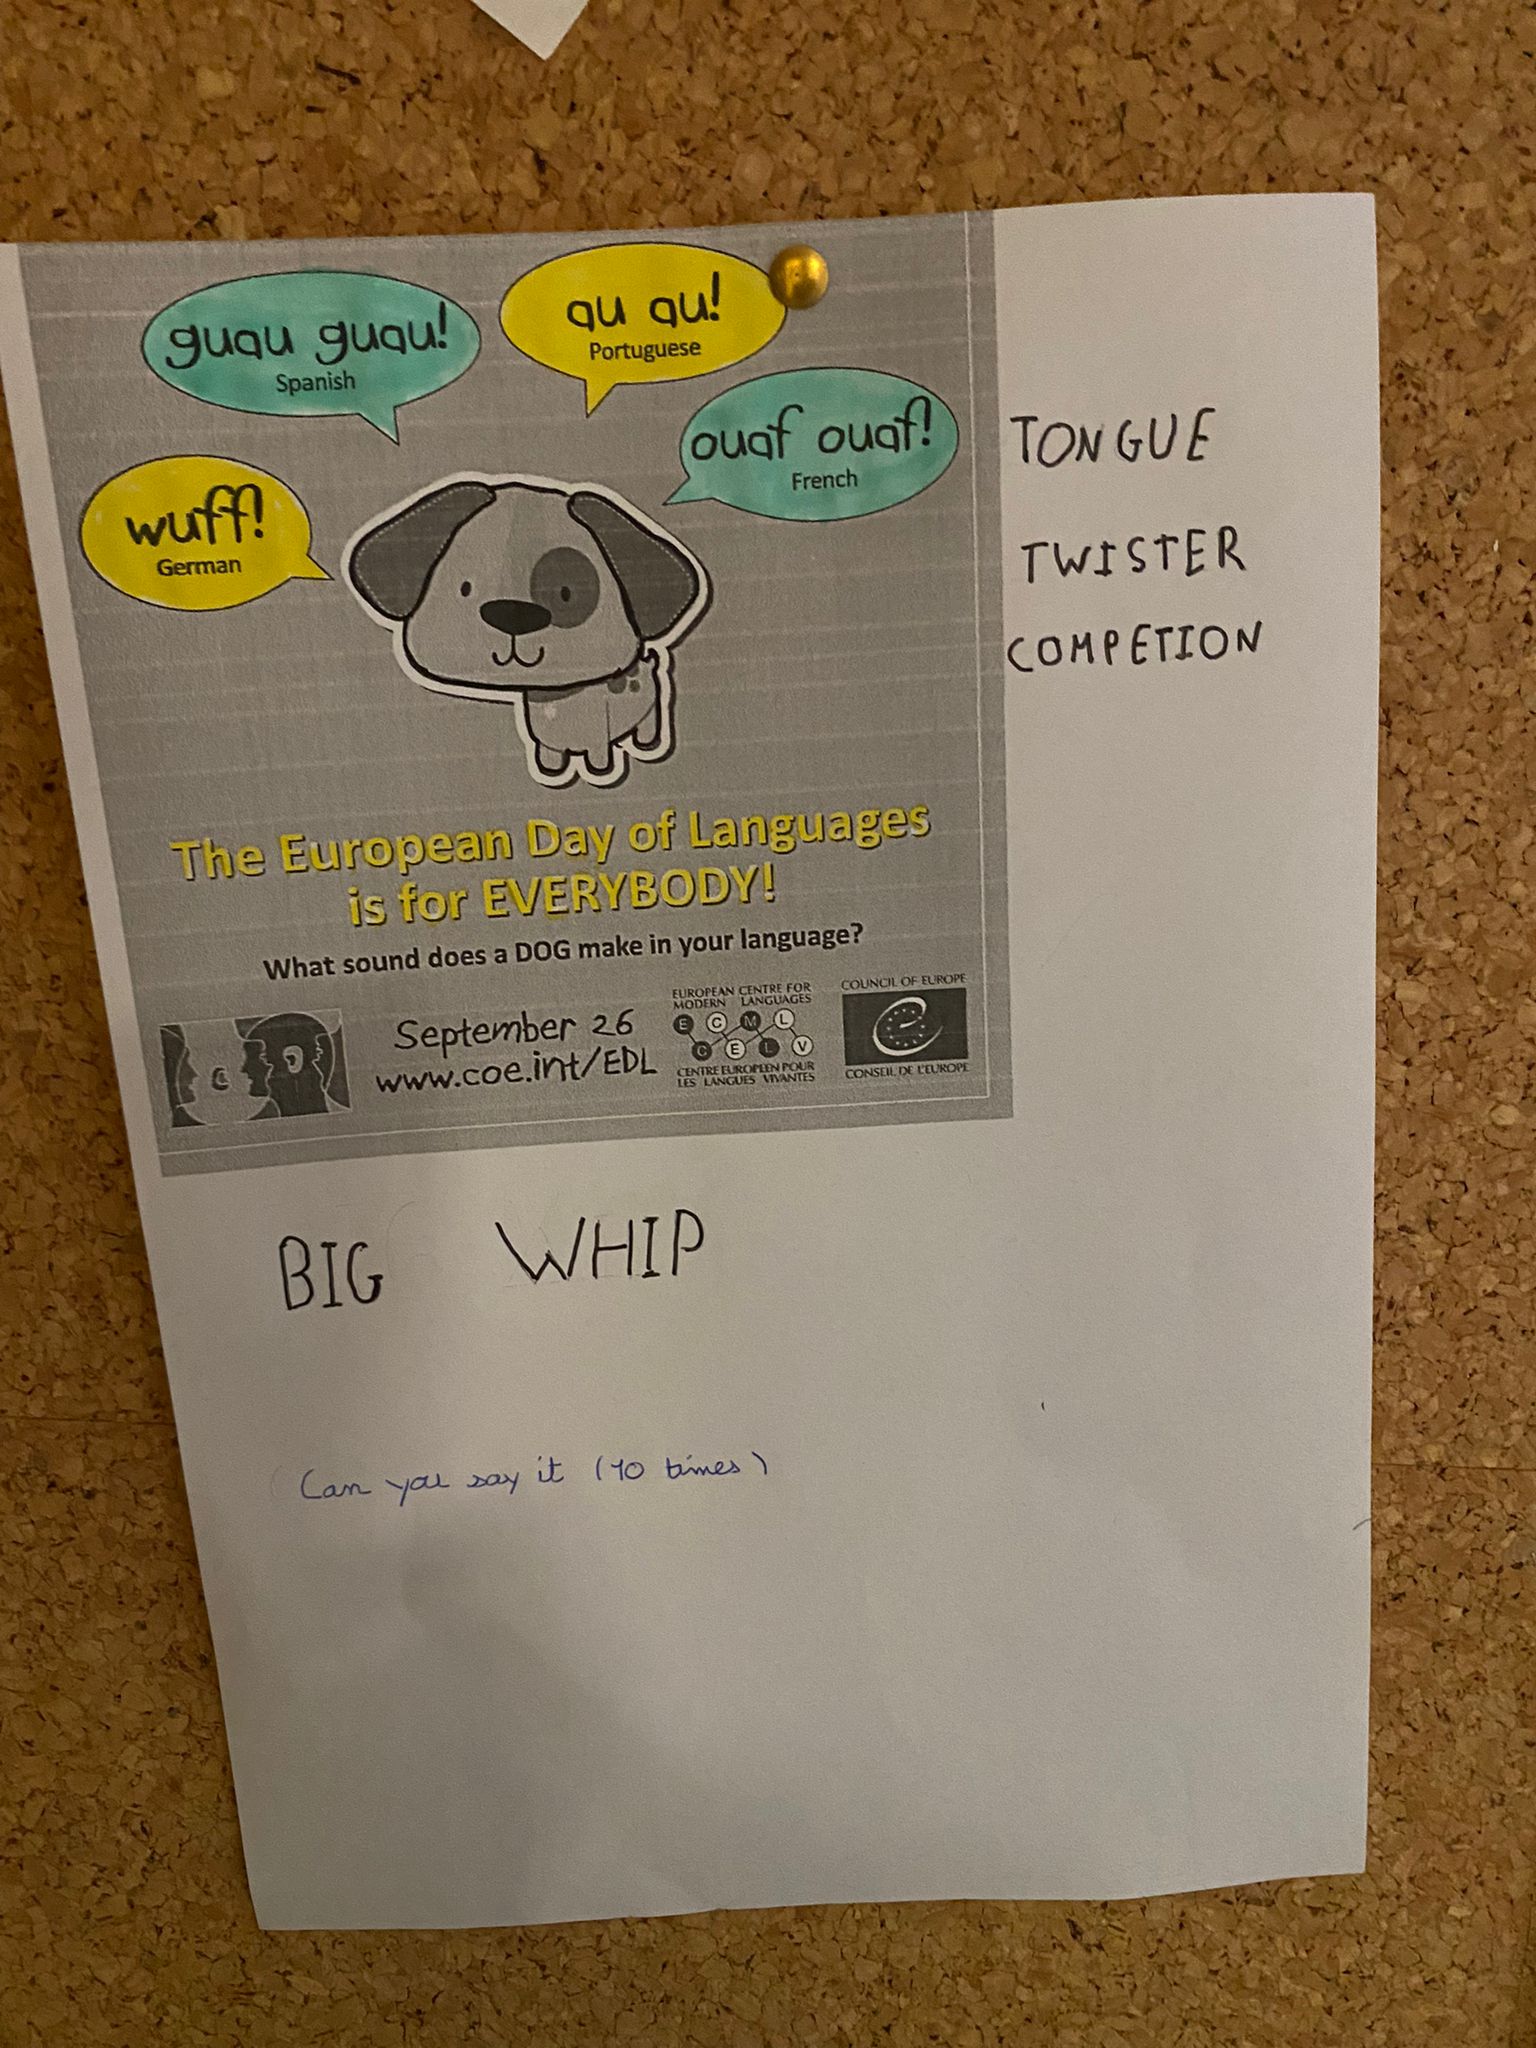 guau guau!
Spanish
au au!
Portuguese
ouaf ouaf!
French
wuff!
German
TONGUE
TWISTER
COMPETION
The European Day of Languages
is for EVERYBODY!
What sound does a DOG make in your language?
September 26
www.coe.int/EDL
EUROPEAN CENTRE FOR
MODERN LANGUAGES
E C M L
C E L V
CENTRE EUROPEEN POUR
LES LANGUES VIVANTES
COUNCIL OF EUROPE
CONSEIL DE L'EUROPE
BIG WHIP
Can you say it (10 times)